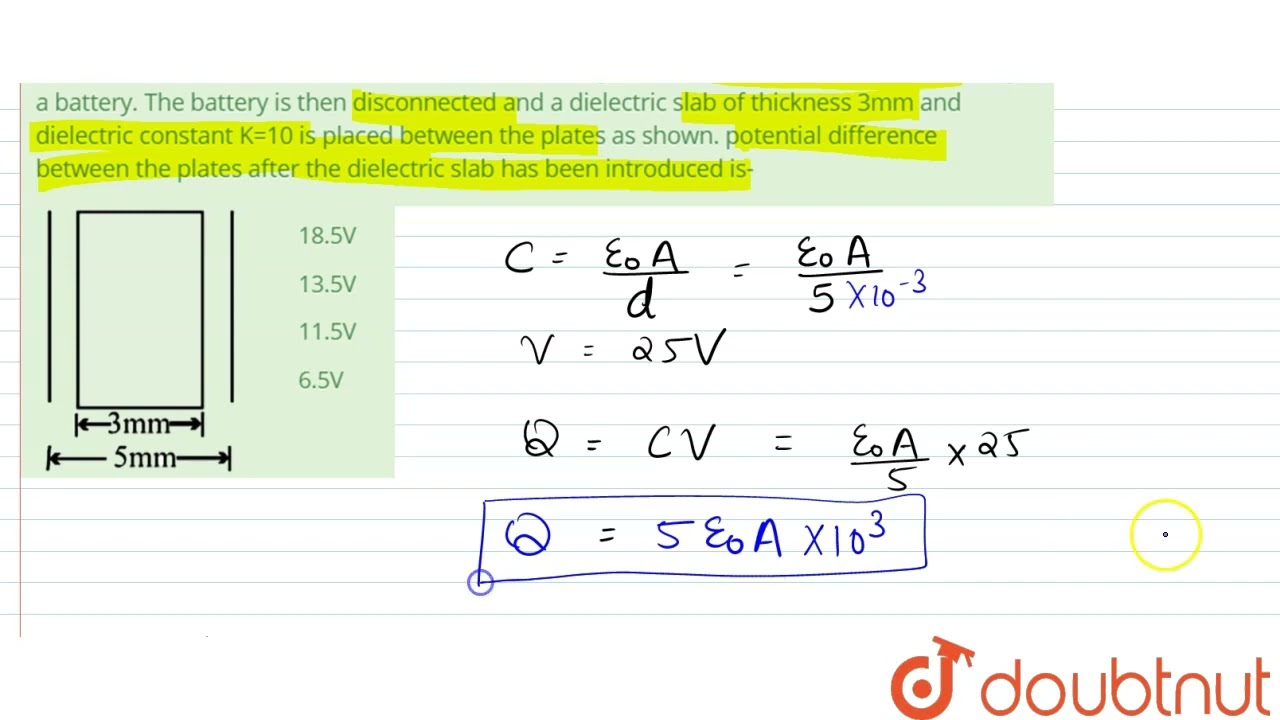 a battery. The battery is then disconnected and a dielectric slab of thickness 3mm and
dielectric constant K=10 is placed between the plates as shown. potential difference
between the plates after the dielectric slab has been introduced is-
18.5V
13.5V
11.5V
6.5V
3mm
5mm
C = ε₀A/d = ε₀A/5 ×10⁻³
V = 25V
Q = CV = ε₀A/5 × 25
Q = 5 ε₀A ×10³
doubtnut